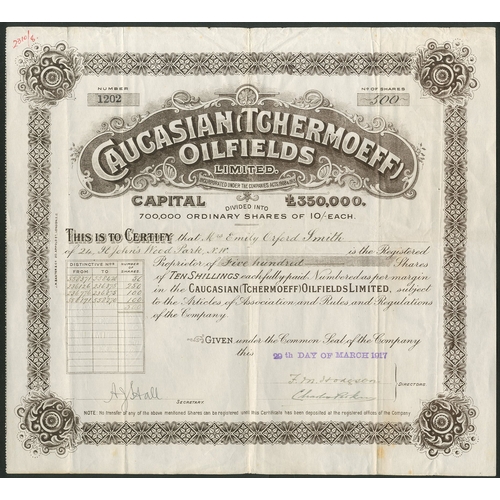 NUMBER
1202
Nº OF SHARES
500
CAUCASIAN (TCHERMOEFF)
OILFIELDS
LIMITED.
INCORPORATED UNDER THE COMPANIES ACTS
CAPITAL £350,000.
DIVIDED INTO
700,000 ORDINARY SHARES OF 10/- EACH.
THIS IS TO CERTIFY that Mrs Emily Orford Smith
of 24, St John's Wood Park, N.W. is the Registered
Proprietor of Five hundred Shares
of TEN SHILLINGS each fully paid Numbered as per margin
in the CAUCASIAN (TCHERMOEFF) OILFIELDS, LIMITED, subject
to the Articles of Association and Rules and Regulations
of the Company.
DISTINCTIVE Nos
NUMBER OF SHARES
FROM TO
GIVEN under the Common Seal of the Company
this 29th DAY OF MARCH 1917
A J Hall
SECRETARY
DIRECTORS
NOTE: No transfer of any of the above mentioned Shares can be registered until this Certificate has been deposited at the registered offices of the Company